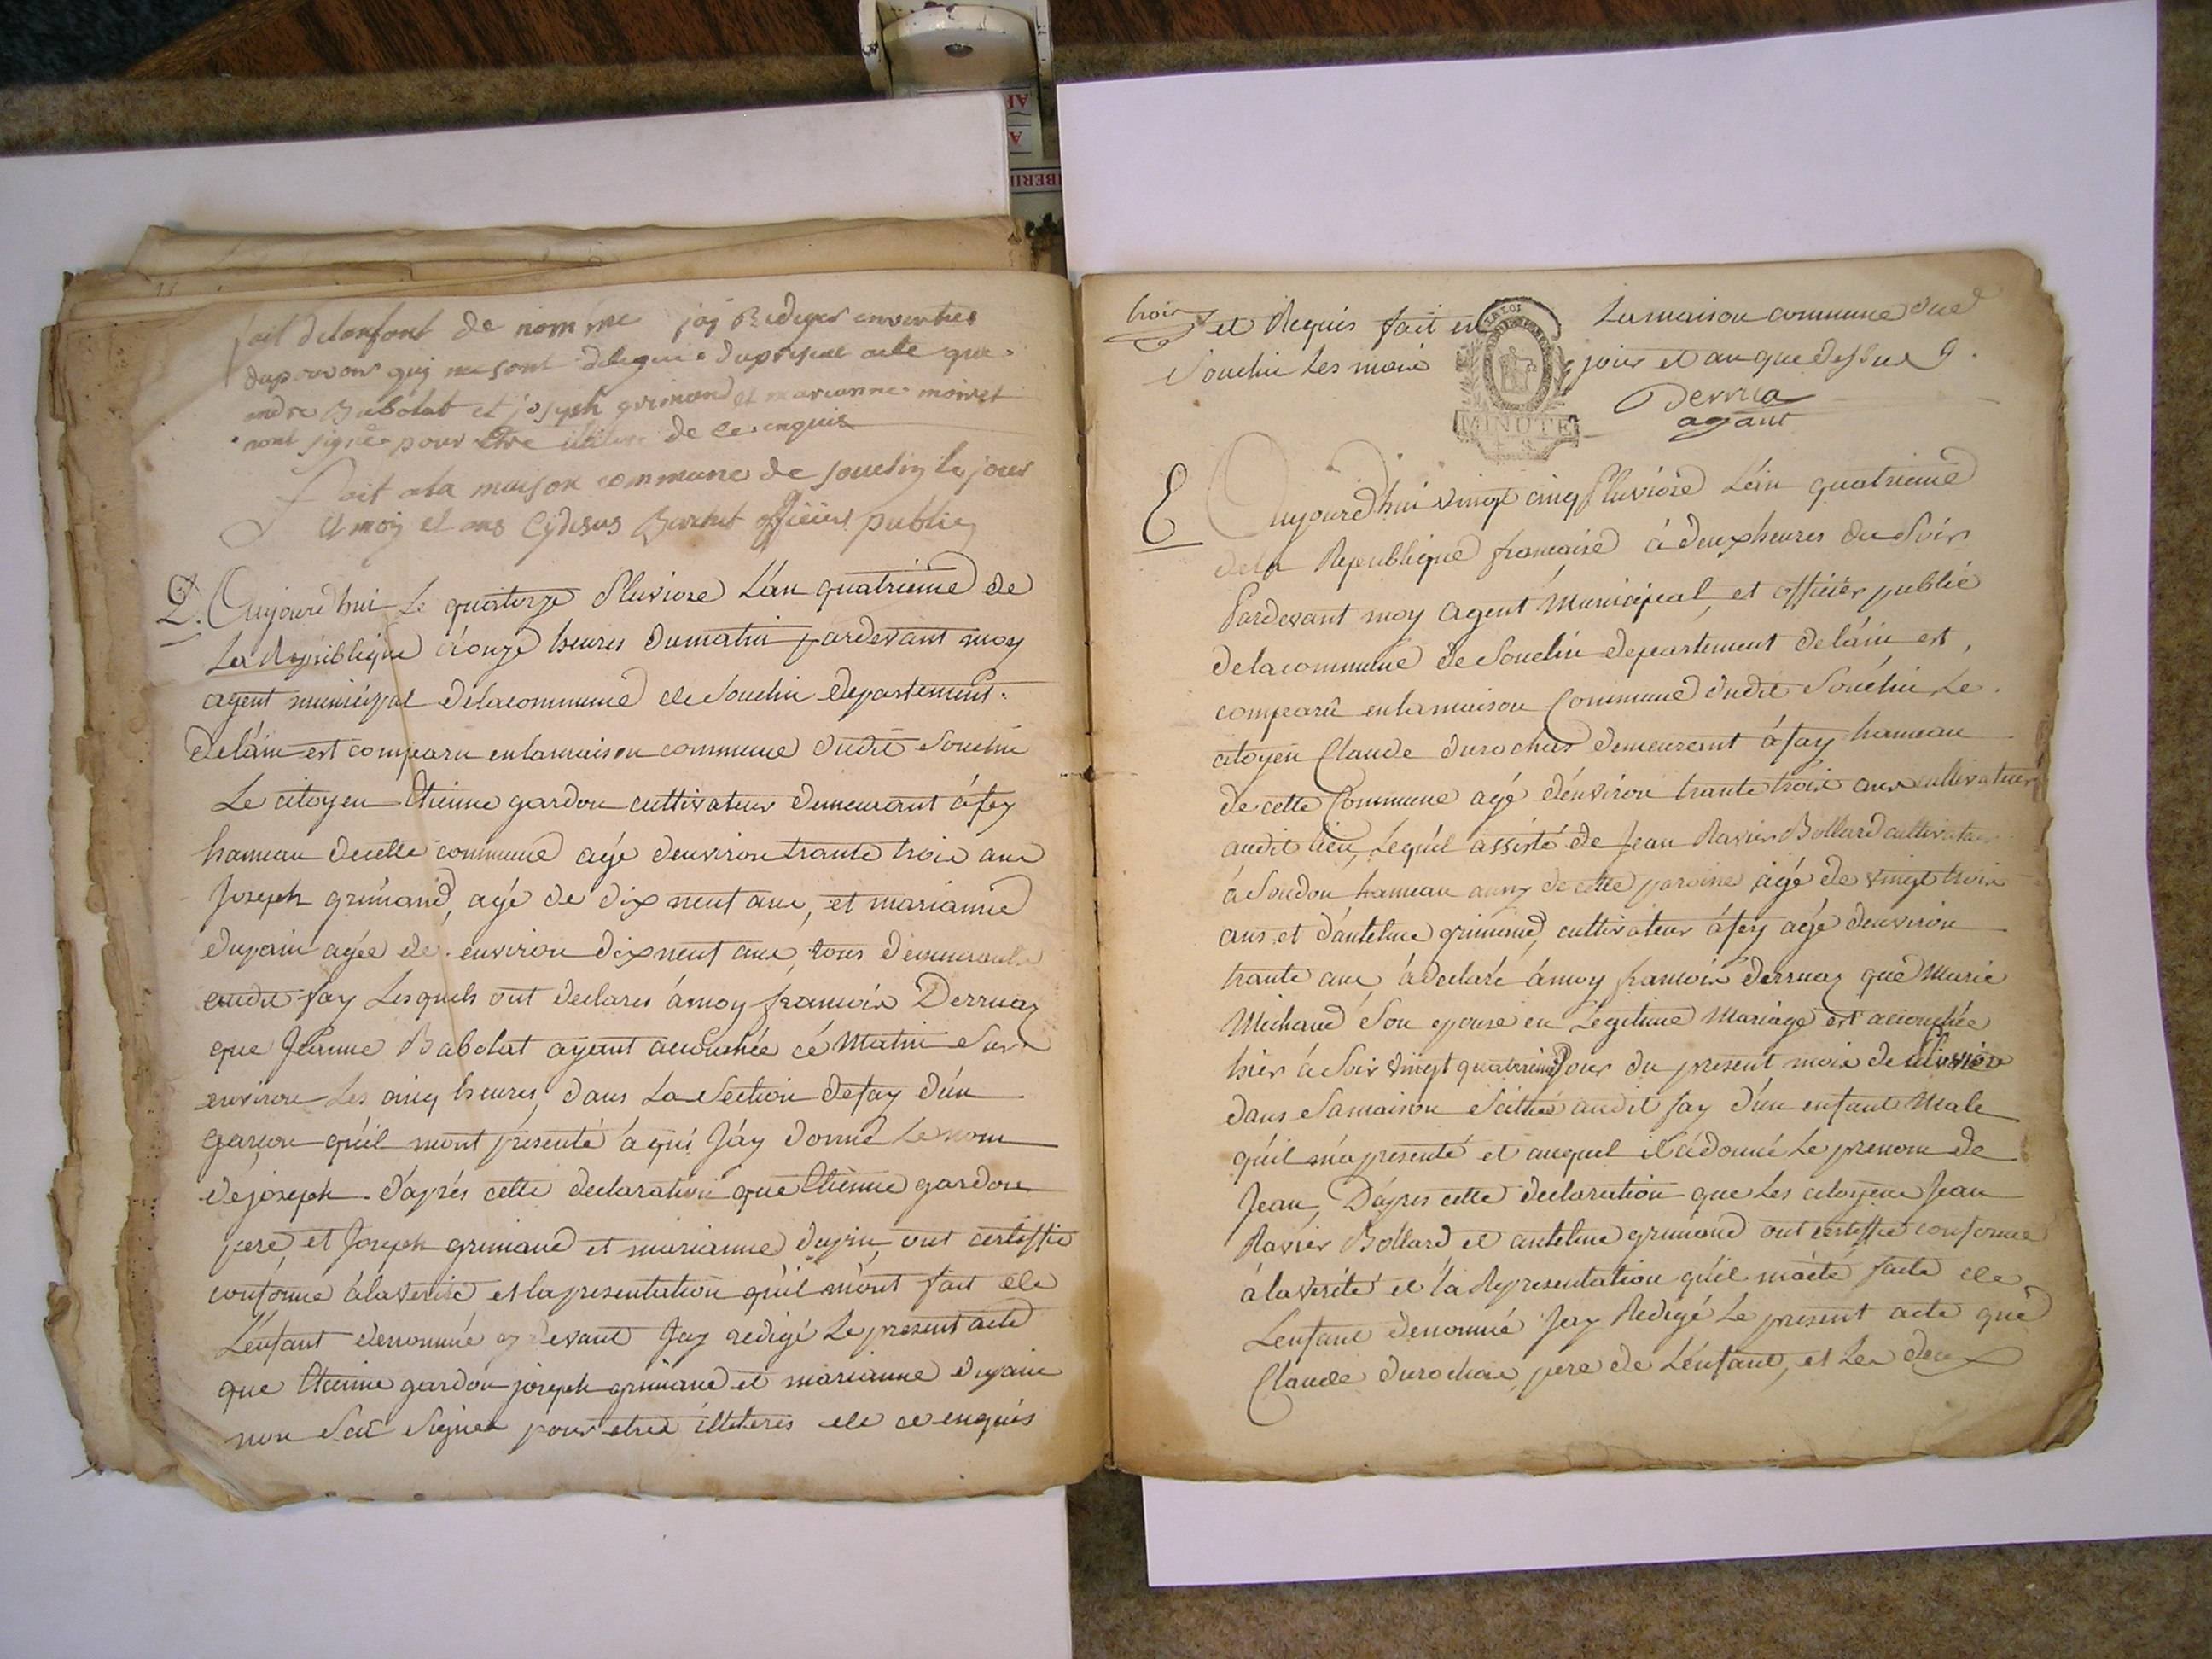 fait delenfont de nommé jay Rediger envertues
dupouvoir quj me sont delegués dupresent acte que
andre Babolat et joseph grimand et marianne moiret
nont signé pour être iliteres de ce enquis
Fait ala maison commune de souclin le jour
et moy et ans Cydesus Berthet officier public
2. Aujourdhui Le quatorze Pluviose L'an quatrieme de
La Republique à onze heures dumatin pardevant moy
agent municipal délacommune de Souclin departement
deláin est comparu enlamaison commune dudit Souclin
Le citoyen Etienne gardon cultivateur demeurant à fey
hameau decette commune agé denviron trante trois ans
Joseph grimand, agé de dix neuf ans, et marianne
dupain agée de environ dix neuf ans, tous demeurants
audit fay Lesquels ont declarés à moy francois Derruaz
que Jeanne Babolat ayant accouchée cé Matin Sur
environ Les cinq heures, dans La Section defay dún
garçon quíl mont presenté à qui Jáy donné Le nom
de joseph d'aprés cette declaration que Etienne gardon
pere, et Joseph grimand et marianne dupin, ont certiffié
conforme àlaverité et lapresentation quíl mónt fait de
L'enfant denommé cy devant Jay redigé Le present acte
que Etienne gardon joseph grimand et marianne dupain
non Sçu Signer pour etred illiteres de ce enquis
trois et Requis fait en Lamaison commune de
Souclin Les mois jour et an que dessus
LA LOI
MINUTE
Derrua
agant
Aujourdhui vingt cinq Pluviose L'an quatrieme
dela Republique francaise à deux heures du Soir
Pardevant moy agent Municipal, et officier public
delacommune de Souclin departement deláin est,
comparû enlamaison Commune dudit Souclin Le
citoyen Claude durochat demeurant à fay hameau
de cette Commune agé dénviron trante trois ans cultivateur
audit lieu, Lequél assisté de Jean Ravier Bollard cultivateur
à Soudon hameau aussy de cette paroisse agé de vingt trois
ans et dántelme grimand, cultivateur à fey agé denviron
trante ans à declaré àmoy francois derruaz que Marie
Michaud Son epouse en Legitime Mariage est accouchée
hier à Soir vingt quatrieme Jour du present mois de pluviose
dans Samaison Scituée audit fay d'un enfant Male
qúil má presenté et auquel il à donné Le prenom de
Jean, Dápres cette declaration que Les citoyens Jean
Ravier Bollard et antelme grimand ont certiffié conforme
à la verité et la Representation qúil má eté faite de
Lenfant denommé Jay Redigé Le present acte qué
Claude durochat, pere de L'enfant, et Les deux